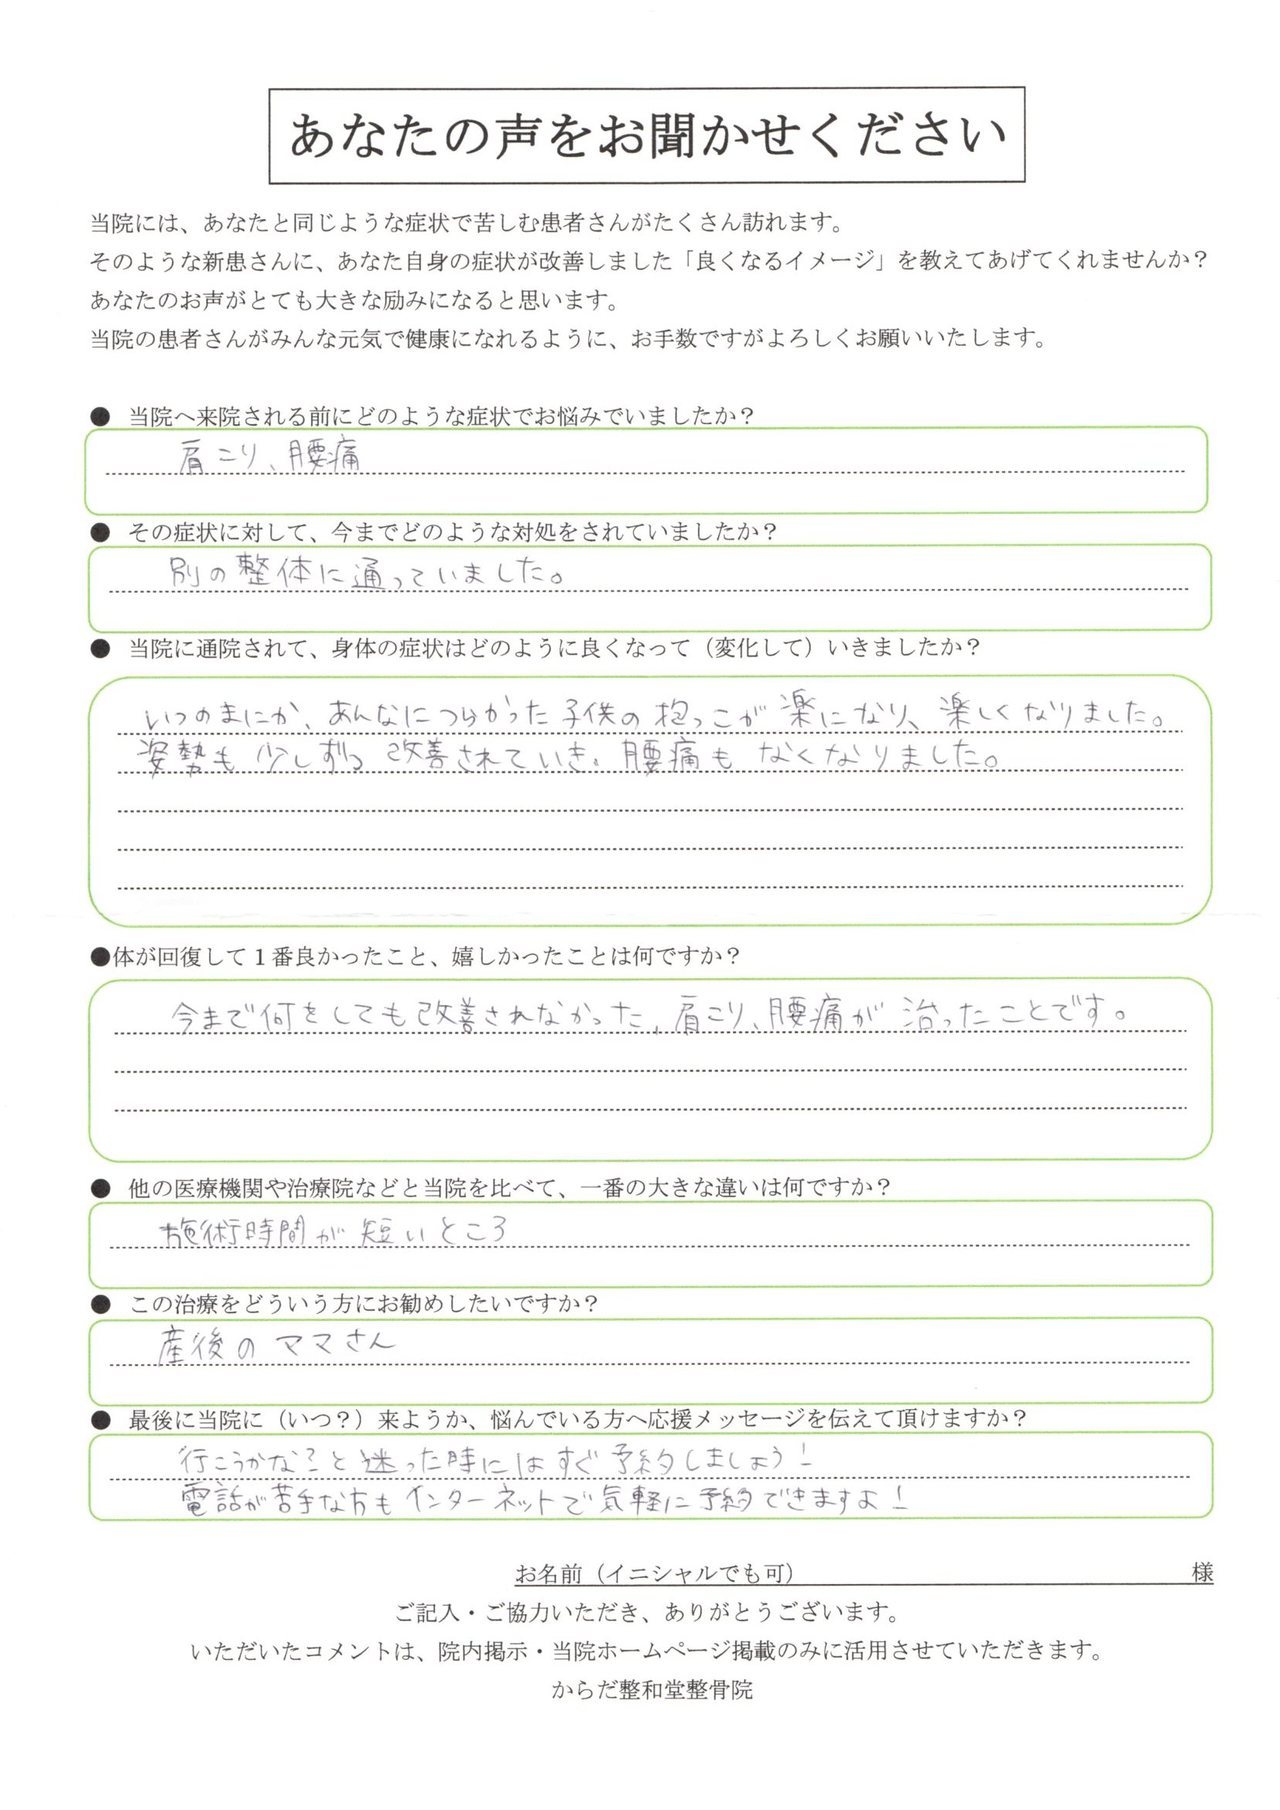 あなたの声をお聞かせください
当院には、あなたと同じような症状で苦しむ患者さんがたくさん訪れます。
そのような新患さんに、あなた自身の症状が改善しました「良くなるイメージ」を教えてあげてくれませんか？
あなたのお声がとても大きな励みになると思います。
当院の患者さんがみんな元気で健康になれるように、お手数ですがよろしくお願いいたします。
● 当院へ来院される前にどのような症状でお悩みでいましたか？
肩こり、腰痛
● その症状に対して、今までどのような対処をされていましたか？
別の整体に通っていました。
● 当院に通院されて、身体の症状はどのように良くなって（変化して）いきましたか？
いつのまにか、あんなにつらかった子供の抱っこが楽になり、楽しくなりました。
姿勢も少しずつ改善されていき、腰痛もなくなりました。
●体が回復して１番良かったこと、嬉しかったことは何ですか？
今まで何をしても改善されなかった、肩こり、腰痛が治ったことです。
● 他の医療機関や治療院などと当院を比べて、一番の大きな違いは何ですか？
施術時間が短いところ
● この治療をどういう方にお勧めしたいですか？
産後のママさん
● 最後に当院に（いつ？）来ようか、悩んでいる方へ応援メッセージを伝えて頂けますか？
行こうかな？と迷った時にはすぐ予約しましょう！
電話が苦手な方もインターネットで気軽に予約できますよ！
お名前（イニシャルでも可） 様
ご記入・ご協力いただき、ありがとうございます。
いただいたコメントは、院内掲示・当院ホームページ掲載のみに活用させていただきます。
からだ整和堂整骨院